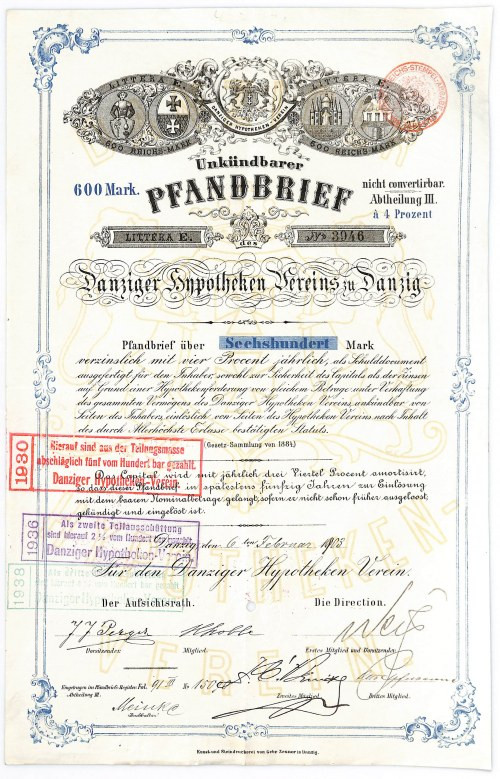 LITTERA E.
LITTERA E.
DANZIGER HYPOTHEKEN-VEREIN
600 REICHS-MARK
600 REICHS-MARK
Unkündbarer
600 Mark.
PFANDBRIEF
nicht convertirbar.
Abtheilung III.
à 4 Prozent
LITTERA E.
des
No 3946
Danziger Hypotheken Vereins zu Danzig
Pfandbrief über Sechshundert Mark
verzinslich mit vier Procent jährlich, als Schulddocument
ausgefertigt für den Inhaber, sowohl zur Sicherheit des Capitals als der Zinsen
auf Grund einer Hypothekenforderung von gleichem Betrage unter Verhaftung
des gesammten Vermögens des Danziger Hypotheken Vereins, unkündbar von
Seiten des Inhabers, einlöslich von Seiten des Hypotheken Vereins nach Inhalt
des durch Allerhöchste Erlasse bestätigten Statuts.
(Gesetz-Sammlung von 1884)
1930
Hierauf sind aus der Teilungsmasse
abschläglich fünf vom Hundert bar gezahlt.
Danziger Hypotheken-Verein
Das Capital wird mit jährlich drei Viertel Procent amortisirt,
so dass dieser Pfandbrief in spätestens fünfzig Jahren zur Einlösung
mit dem baaren Nominalbetrage gelangt, sofern er nicht schon früher ausgeloost,
gekündigt und eingelöst ist.
1936
Als zweite Teilausschüttung
sind hierauf 2 ½ vom Hundert
Danziger Hypotheken-Verein
Danzig, den 6 ten Februar 1903.
1938
Danziger Hypotheken-Verein
Für den Danziger Hypotheken Verein.
Der Aufsichtsrath.
Die Direction.
Vorsitzender.
Mitglied.
Erstes Mitglied und Vorsitzender.
Eingetragen im Pfandbrief-Register Fol. 91 III
Abtheilung III.
Zweites Mitglied.
Drittes Mitglied.
Meinke
Buchhalter
Kunst- und Steindruckerei von Gebr. Zeuner in Danzig.